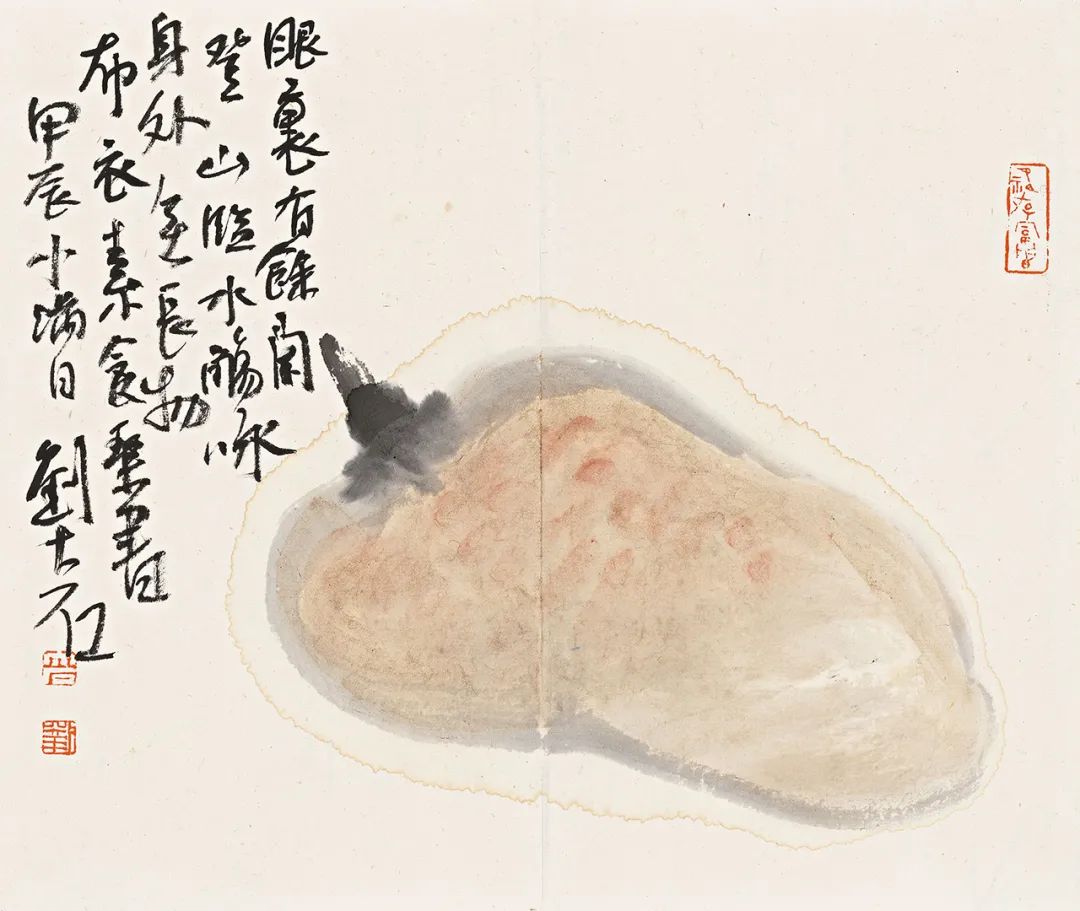 眼裏有餘閑
登山臨水觴咏
身外無長物
布衣素食琴書
甲辰小滿日 劉
劉